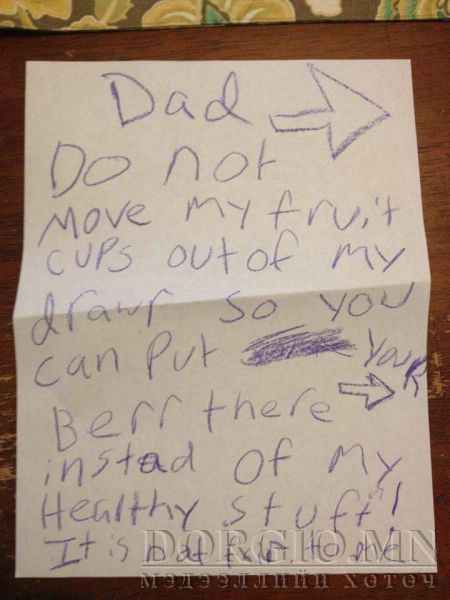 Dad
Do not
Move My fruit
cups out of my
drawr so you
can Put YouR
Berr there
instad of my
Healthy stuff!
It is not fair to me!
DORGIO.MN
Мэдээллийн хөтөч